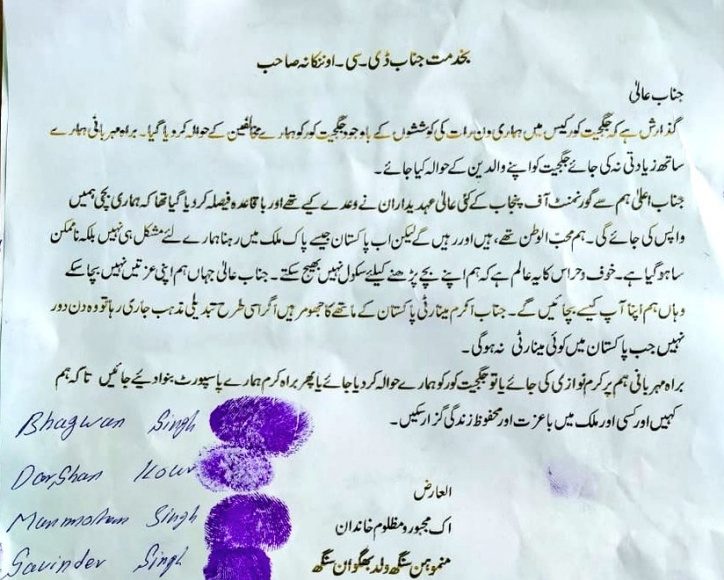 بخدمت جناب ڈی۔سی۔او ننکانہ صاحب
جناب عالی
گذارش ہے کہ جگجیت کور کیس میں ہماری دن رات کی کوششوں کے باوجود جگجیت کور کو ہمارے مخالفین کے حوالہ کر دیا گیا۔ براہ مہربانی ہمارے
ساتھ زیادتی نہ کی جائے جگجیت کو اپنے والدین کے حوالہ کیا جائے۔
جناب اعلیٰ ہم سے گورنمنٹ آف پنجاب کے کئی عالی عہدیداران نے وعدے کیے تھے اور باقاعدہ فیصلہ کر دیا گیا تھا کہ ہماری بچی ہمیں
واپس کی جائے گی۔ ہم محب الوطن تھے، ہیں اور رہیں گے لیکن اب پاکستان جیسے پاک ملک میں رہنا ہمارے لئے مشکل ہی نہیں بلکہ ناممکن
سا ہو گیا ہے۔ خوف و حراس کا یہ عالم ہے کہ ہم اپنے بچے پڑھنے کیلئے سکول نہیں بھیج سکتے۔ جناب عالیٰ جہاں ہم اپنی عزتیں نہیں بچا سکے
وہاں ہم اپنا آپ کیسے بچائیں گے۔ جناب اکرم مینارٹی پاکستان کے ماتھے کا جھومر ہیں اگر اسی طرح تبدیلی مذہب جاری رہا تو وہ دن دور
نہیں جب پاکستان میں کوئی مینارٹی نہ ہوگی۔
براہ مہربانی ہم پر کرم نوازی کی جائے یا تو جگجیت کور کو ہمارے حوالہ کر دیا جائے یا پھر براہ کرم ہمارے پاسپورٹ بنوا دیئے جائیں تاکہ ہم
کہیں اور کسی اور ملک میں باعزت اور محفوظ زندگی گزار سکیں۔
Bhagwan Singh
Darshan Kour
العارض
Manmohan Singh
اک مجبور و مظلوم خاندان
Savinder Singh
منموہن سنگھ ولد بھگوان سنگھ